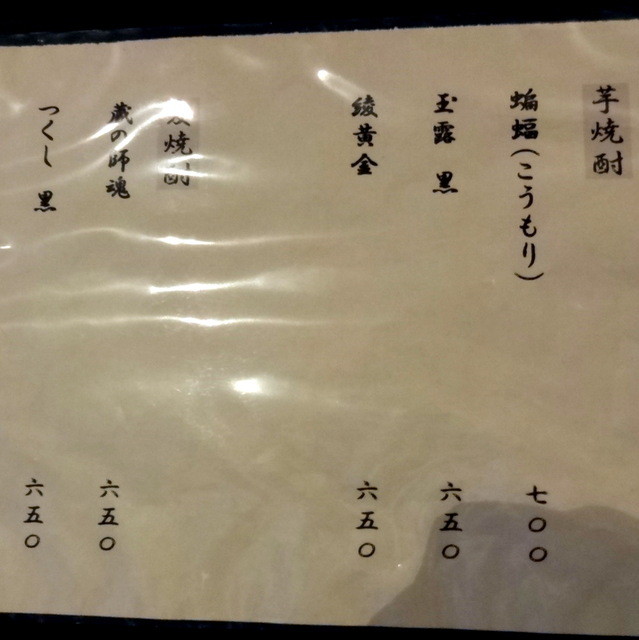 芋焼酎
蝙蝠(こうもり) 七〇〇
玉露 黒 六五〇
綾黄金 六五〇
焼酎
蔵の師魂 六五〇
つくし 黒 六五〇